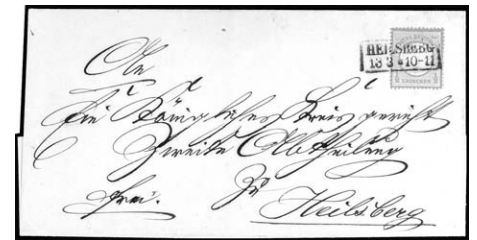 HEILSBERG
13 3 * 10-11
GROSCHEN
An
Ein Königliches Kreisgericht
Zweite Abtheilung
frei. Zu
Heilsberg